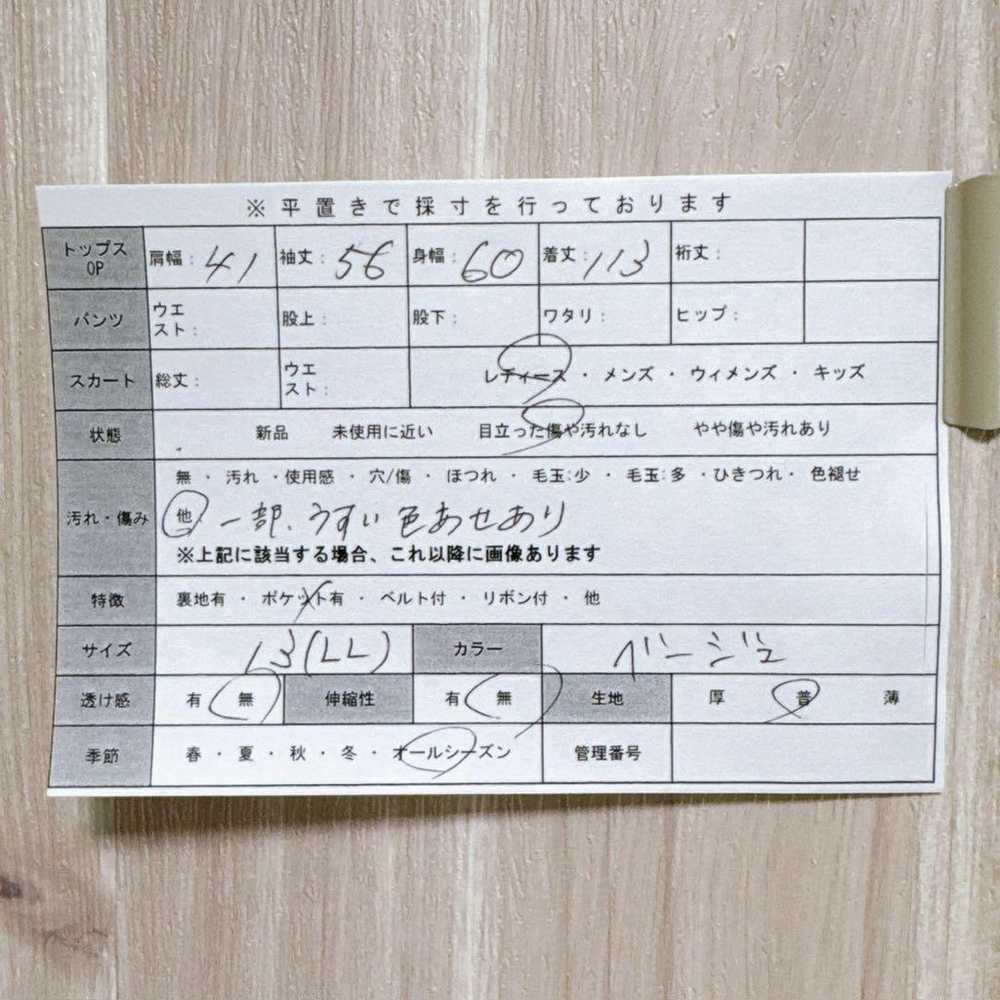 ※平置きで採寸を行っております
トップス OP 肩幅: 41 袖丈: 56 身幅: 60 着丈: 113 裄丈:
パンツ ウエスト: 股上: 股下: ワタリ: ヒップ:
スカート 総丈: ウエスト: レディース ・ メンズ ・ ウィメンズ ・ キッズ
状態 新品 未使用に近い 目立った傷や汚れなし やや傷や汚れあり
汚れ・傷み 無 ・ 汚れ ・使用感 ・ 穴/傷 ・ ほつれ ・ 毛玉:少 ・ 毛玉:多 ・ひきつれ・ 色褪せ
他 一部、うすい色あせあり
※上記に該当する場合、これ以降に画像あります
特徴 裏地有 ・ ポケット有 ・ ベルト付 ・ リボン付 ・ 他
サイズ 13(LL) カラー ベージュ
透け感 有 無 伸縮性 有 無 生地 厚 普 薄
季節 春 ・ 夏 ・ 秋 ・ 冬 ・ オールシーズン 管理番号